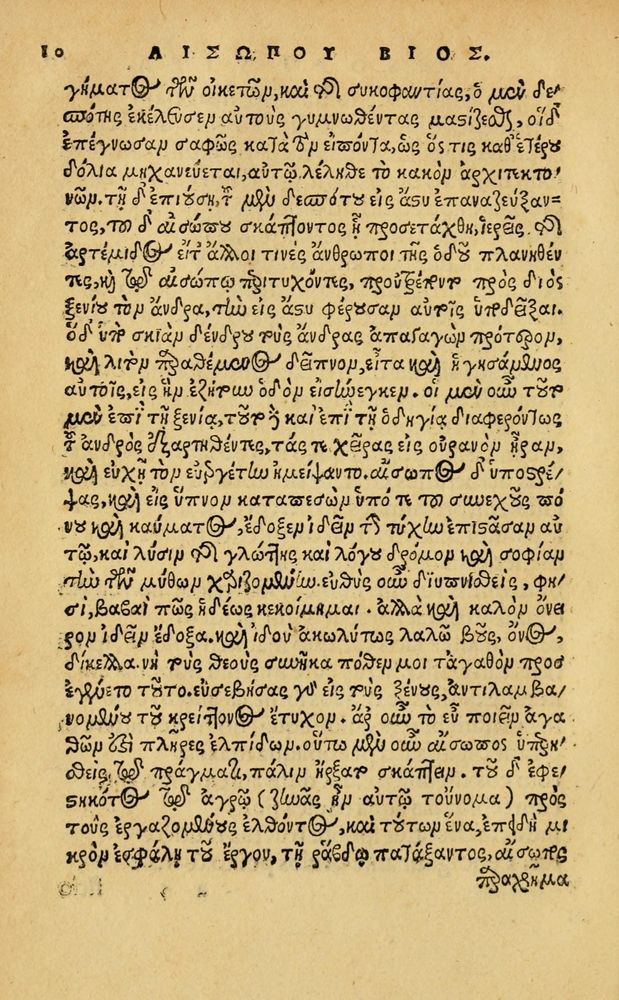 10 ΑΙΣΩΠΟΥ ΒΙΟΣ.
γήματος τῶν οἰκετῶν, καὶ τῆς συκοφαντίας, ὁ μὲν δε-
σπότης ἐκέλευσεν αὐτοὺς γυμνωθέντας μαστίζεσθαι, οἱ δ'
ἐπέγνωσαν σαφῶς κατὰ τὸν εἰπόντα, ὡς ὅστις καθ' ἑτέρου
δόλια μηχανεύεται, αὐτῷ λέληθε τὸ κακὸν ἀρχιτεκτο-
νῶν. τῇ δ' ἐπιούσῃ, τοῦ μὲν δεσπότου εἰς ἄστυ ἐπαναζεύξαν-
τος, τοῦ δ' αἰσώπου σκάπτοντος ᾗ προσετάχθη, ἱερεῖς τῆς
ἀρτέμιδος εἴτ' ἄλλοι τινὲς ἄνθρωποι τῆς ὁδοῦ πλανηθέν
τες, καὶ τῷ αἰσώπῳ περιτυχόντες, προὔτρεπον πρὸς διὸς
ξενίου τὸν ἄνδρα, τὴν εἰς ἄστυ φέρουσαν αὐτοῖς ὑποδεῖξαι.
ὁ δ' ὑπὸ σκιὰν δένδρου τοὺς ἄνδρας ἀπαγαγὼν πρότερον,
καὶ λιτὸν παραθέμενος δεῖπνον, εἶτα καὶ ἡγησάμενος
αὐτοῖς, εἰς ἣν ἐζήτουν ὁδὸν εἰσήνεγκεν. οἱ μὲν οὖν τοῦτο
μὲν ἐπὶ τῇ ξενίᾳ, τοῦτο δὲ καὶ ἐπὶ τῇ ὁδηγίᾳ διαφερόντως
τοῦ ἀνδρὸς ἐξαρτηθέντες, τάς τε χεῖρας εἰς οὐρανὸν ἦραν,
καὶ εὐχῇ τὸν εὐεργέτην ἠμείψαντο. αἴσωπος δ' ὑποστρέ-
ψας, καὶ εἰς ὕπνον καταπεσὼν ὑπό τε τοῦ συνεχοῦς πό-
νου καὶ καύματος, ἔδοξεν ἰδεῖν τὴν τύχην ἐπιστᾶσαν αὐ
τῷ, καὶ λύσιν τῆς γλώττης καὶ λόγου δρόμον καὶ σοφίαν
τὴν τῶν μύθων χαριζομένην. εὐθὺς οὖν διϋπνισθεὶς, φη-
σί, βαβαὶ πῶς ἡδέως κεκοίμημαι. ἀλλὰ καὶ καλὸν ὄνει
ρον ἰδεῖν ἔδοξα. καὶ ἰδοὺ ἀκωλύτως λαλῶ βοῦς, ὄνος,
δίκελλα. νὴ τοὺς θεοὺς συνῆκα πόθεν μοι τἀγαθὸν προσ
εγένετο τοῦτο. εὐσεβήσας γὰρ εἰς τοὺς ξένους, ἀντιλαμβα-
νομένου τοῦ κρείττονος ἔτυχον. ἆρ' οὖν τὸ εὖ ποιεῖν ἀγα
θῶν ἐστὶ πλῆρες ἐλπίδων. οὕτω μὲν οὖν αἴσωπος ὑπερησ-
θεὶς τῷ πράγματι, πάλιν ἤρξατο σκάπτειν. τοῦ δ' ἐφε-
στηκότος τῷ ἀγρῷ (ζηνᾶς ἦν αὐτῷ τοὔνομα) πρὸς
τοὺς ἐργαζομένους ἐλθόντος, καὶ τούτων ἕνα, ἐπειδὴ μι
κρὸν ἐσφάλη τοῦ ἔργου, τῇ ῥάβδῳ πατάξαντος, αἴσωπος
παραχρῆμα